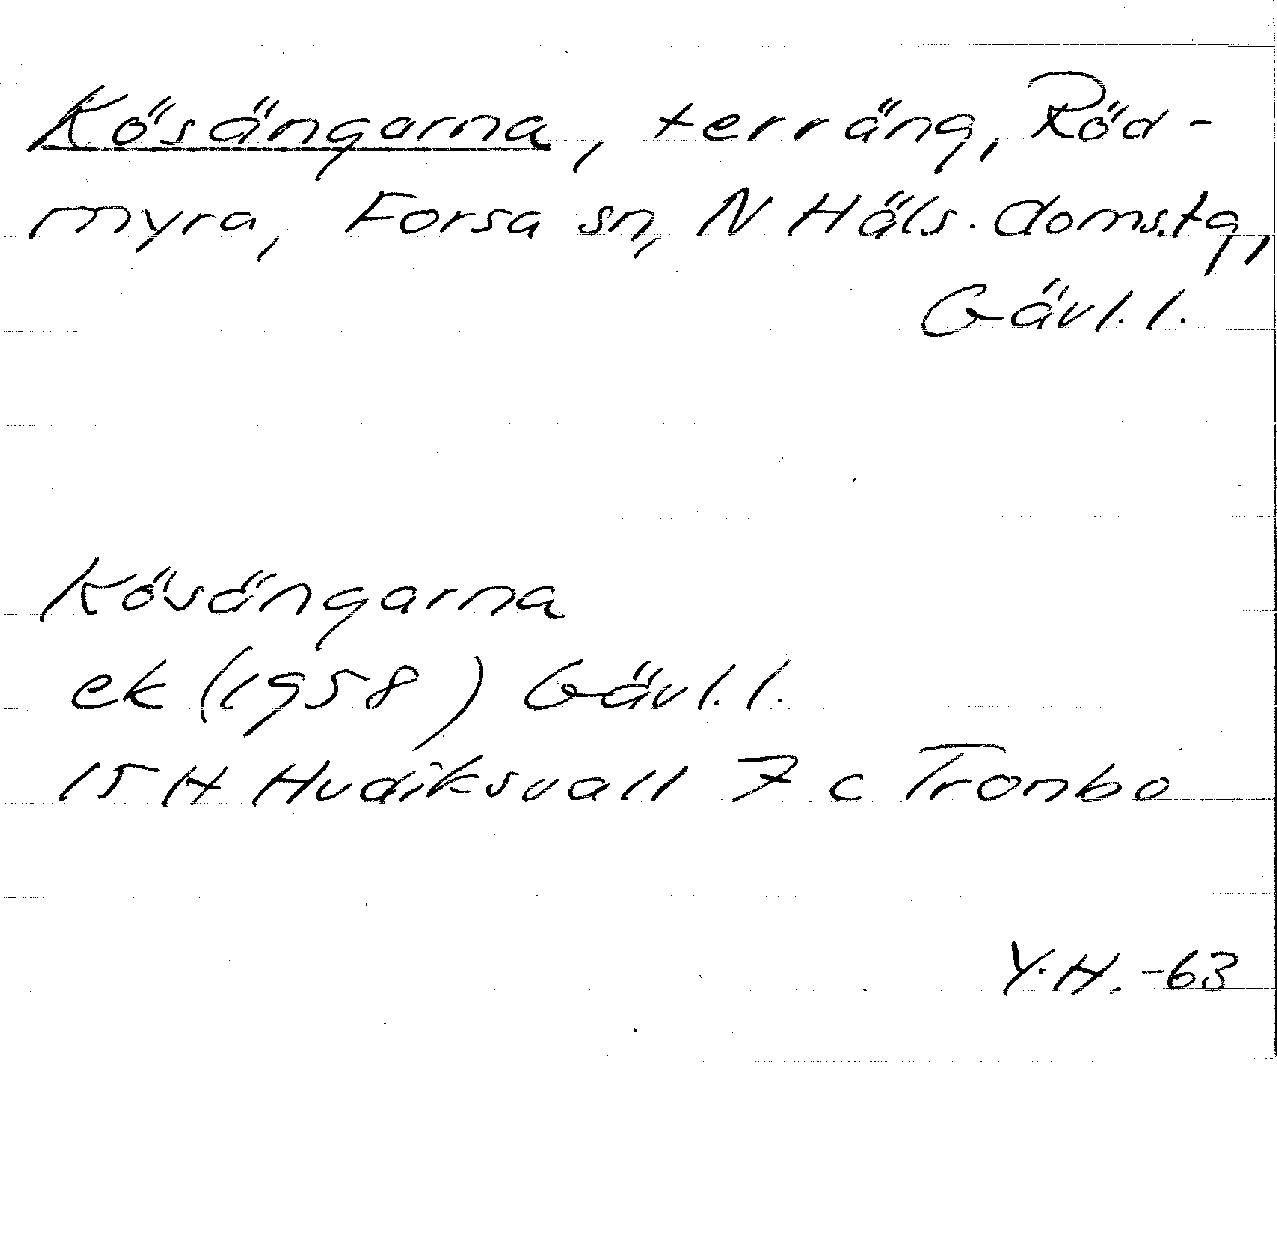 Kösängarna, terräng, Röd-
myra, Forsa sn, N Häls. doms.tg,
Gävl. l.
Kösängarna
ek (1958) Gävl. l.
15 H Hudiksvall 7 c Tronbo
Y.H. -63